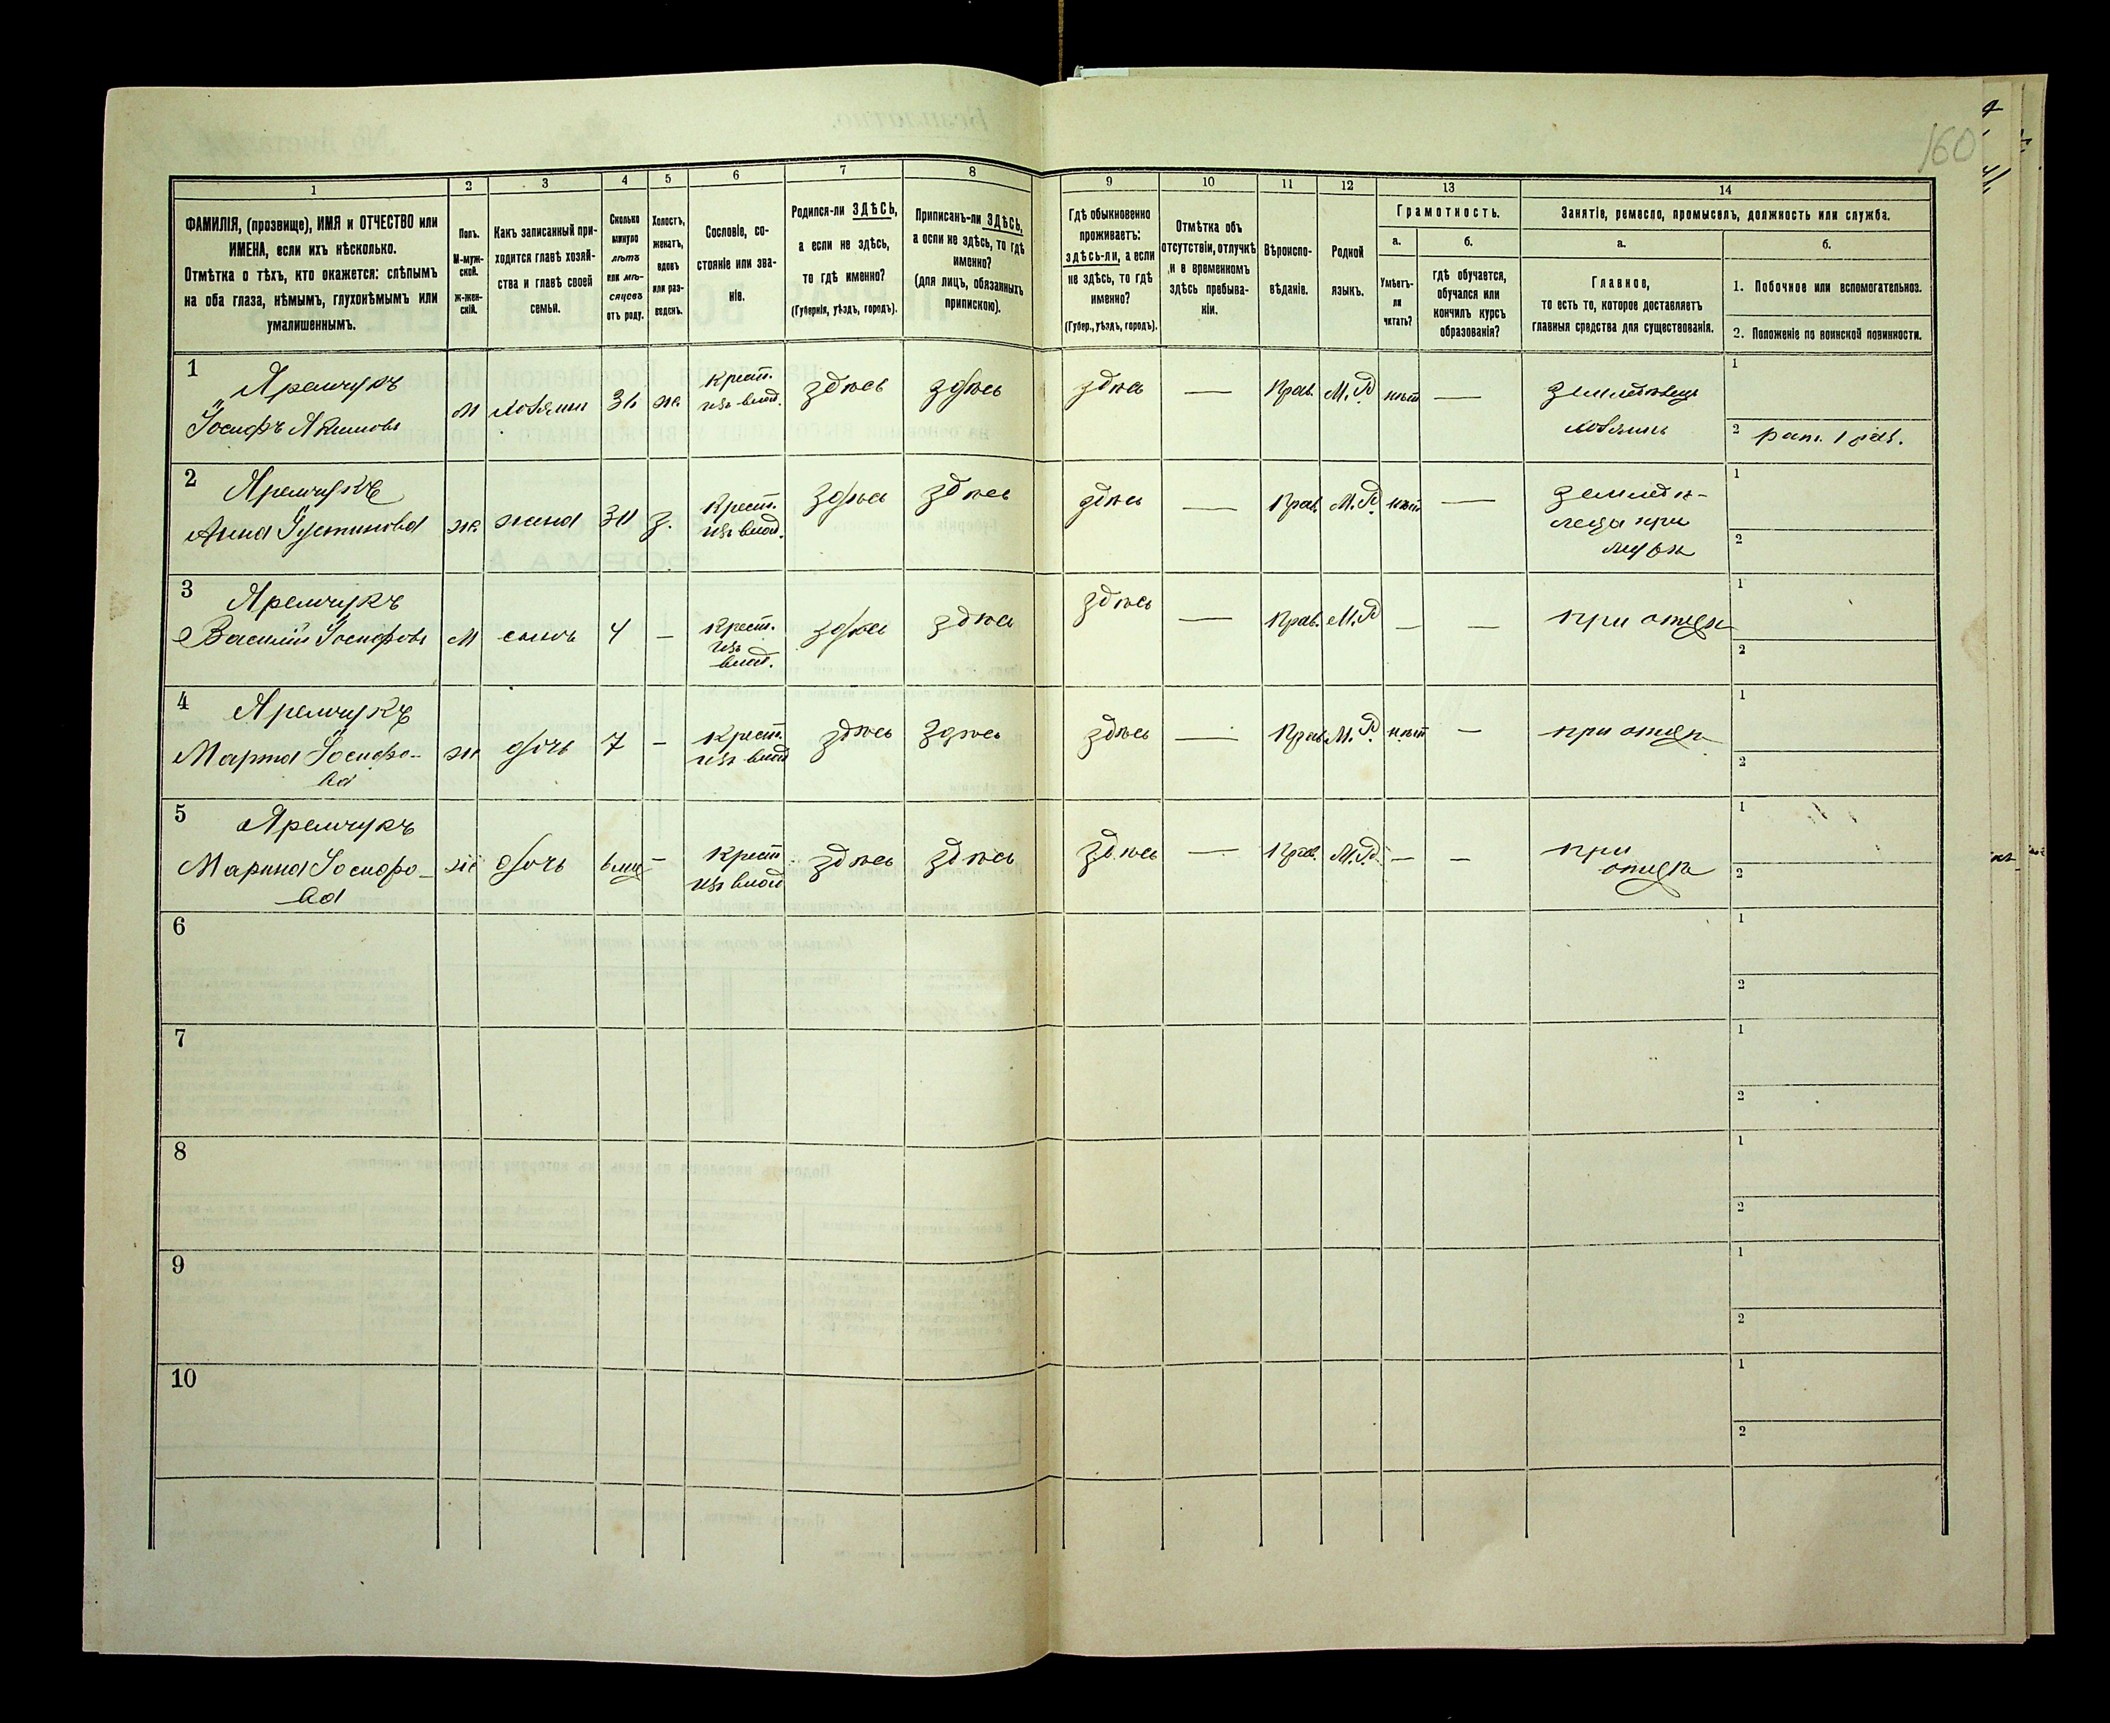 160
1 2 3 4 5 6 7 8 9 10 11 12 13 14
ФАМИЛІЯ, (прозвище), ИМЯ и ОТЧЕСТВО или
ИМЕНА, если ихъ нѣсколько.
Отмѣтка о тѣхъ, кто окажется: слѣпымъ
на оба глаза, нѣмымъ, глухонѣмымъ или
умалишеннымъ.
Полъ.
М-муж-
ской.
ж-жен-
скій.
Какъ записанный при-
ходится главѣ хозяй-
ства и главѣ своей
семьи.
Сколько
минуло
лѣтъ
или мѣ-
сяцевъ
отъ роду.
Холостъ,
женатъ,
вдовъ
или раз-
веденъ.
Сословіе, со-
стояніе или зва-
ніе.
Родился-ли ЗДѢСЬ,
а если не здѣсь,
то гдѣ именно?
(Губернія, уѣздъ, городъ).
Приписанъ-ли ЗДѢСЬ,
а если не здѣсь, то гдѣ
именно?
(для лицъ, обязанныхъ
припискою).
Гдѣ обыкновенно
проживаетъ:
здѣсь-ли, а если
не здѣсь, то гдѣ
именно?
(Губер., уѣздъ, городъ).
Отмѣтка объ
отсутствіи, отлучкѣ
и о временномъ
здѣсь пребыва-
ніи.
Вѣроиспо-
вѣданіе.
Родной
языкъ.
Грамотность.
а.
Умѣетъ-
ли
читать?
б.
гдѣ обучается,
обучался или
кончилъ курсъ
образованія?
Занятіе, ремесло, промыселъ, должность или служба.
а.
Главное,
то есть то, которое доставляетъ
главныя средства для существованія.
б.
1. Побочное или вспомогательное.
2. Положеніе по воинской повинности.
1 Яремчукъ
Іосифъ Якимовъ
м хозяинъ ж. Крест.
изъ влад. здѣсь здѣсь здѣсь — Прав. М.Р. нѣтъ — земледѣлецъ
хозяинъ
1
2 рат. 1 раз.
2 Яремчукъ
Анна Іустинова
ж жена 30 з. Крест.
изъ влад. здѣсь здѣсь здѣсь Прав. М.Р. нѣтъ — земледѣ-
леца при
мужѣ
1
2
3 Яремчукъ
Василій Іосифовъ
м сынъ 4 — Крест.
изъ
влад. здѣсь здѣсь здѣсь — Прав. М.Р — — при отцѣ
1
2
4 Яремчукъ
Марта Іосифо-
ва
ж дочь 7 — Крест.
изъ влад здѣсь здѣсь здѣсь — Прав М.Р. нѣтъ — при отцѣ
1
2
5 Яремчукъ
Марина Іосифо-
ва
ж дочь 6 мц — Крест
изъ влад здѣсь здѣсь здѣсь — Прав. М.Р. — — при
отцѣ
1
2
6
1
2
7
1
2
8
1
2
9
1
2
10
1
2